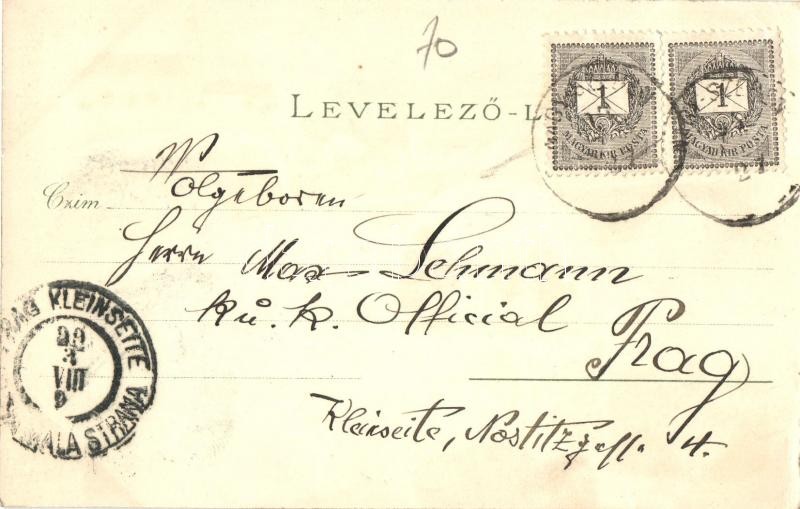 70
LEVELEZŐ-L
1 MAGYAR KIR. POSTA
1 MAGYAR KIR. POSTA
Wolgeboren
Czim
Herrn Max Lehmann
k. u. k. Official
Prag
Kleinseite, Nostitzgasse 4.
PRAG KLEINSEITE
MALA STRANA
VIII